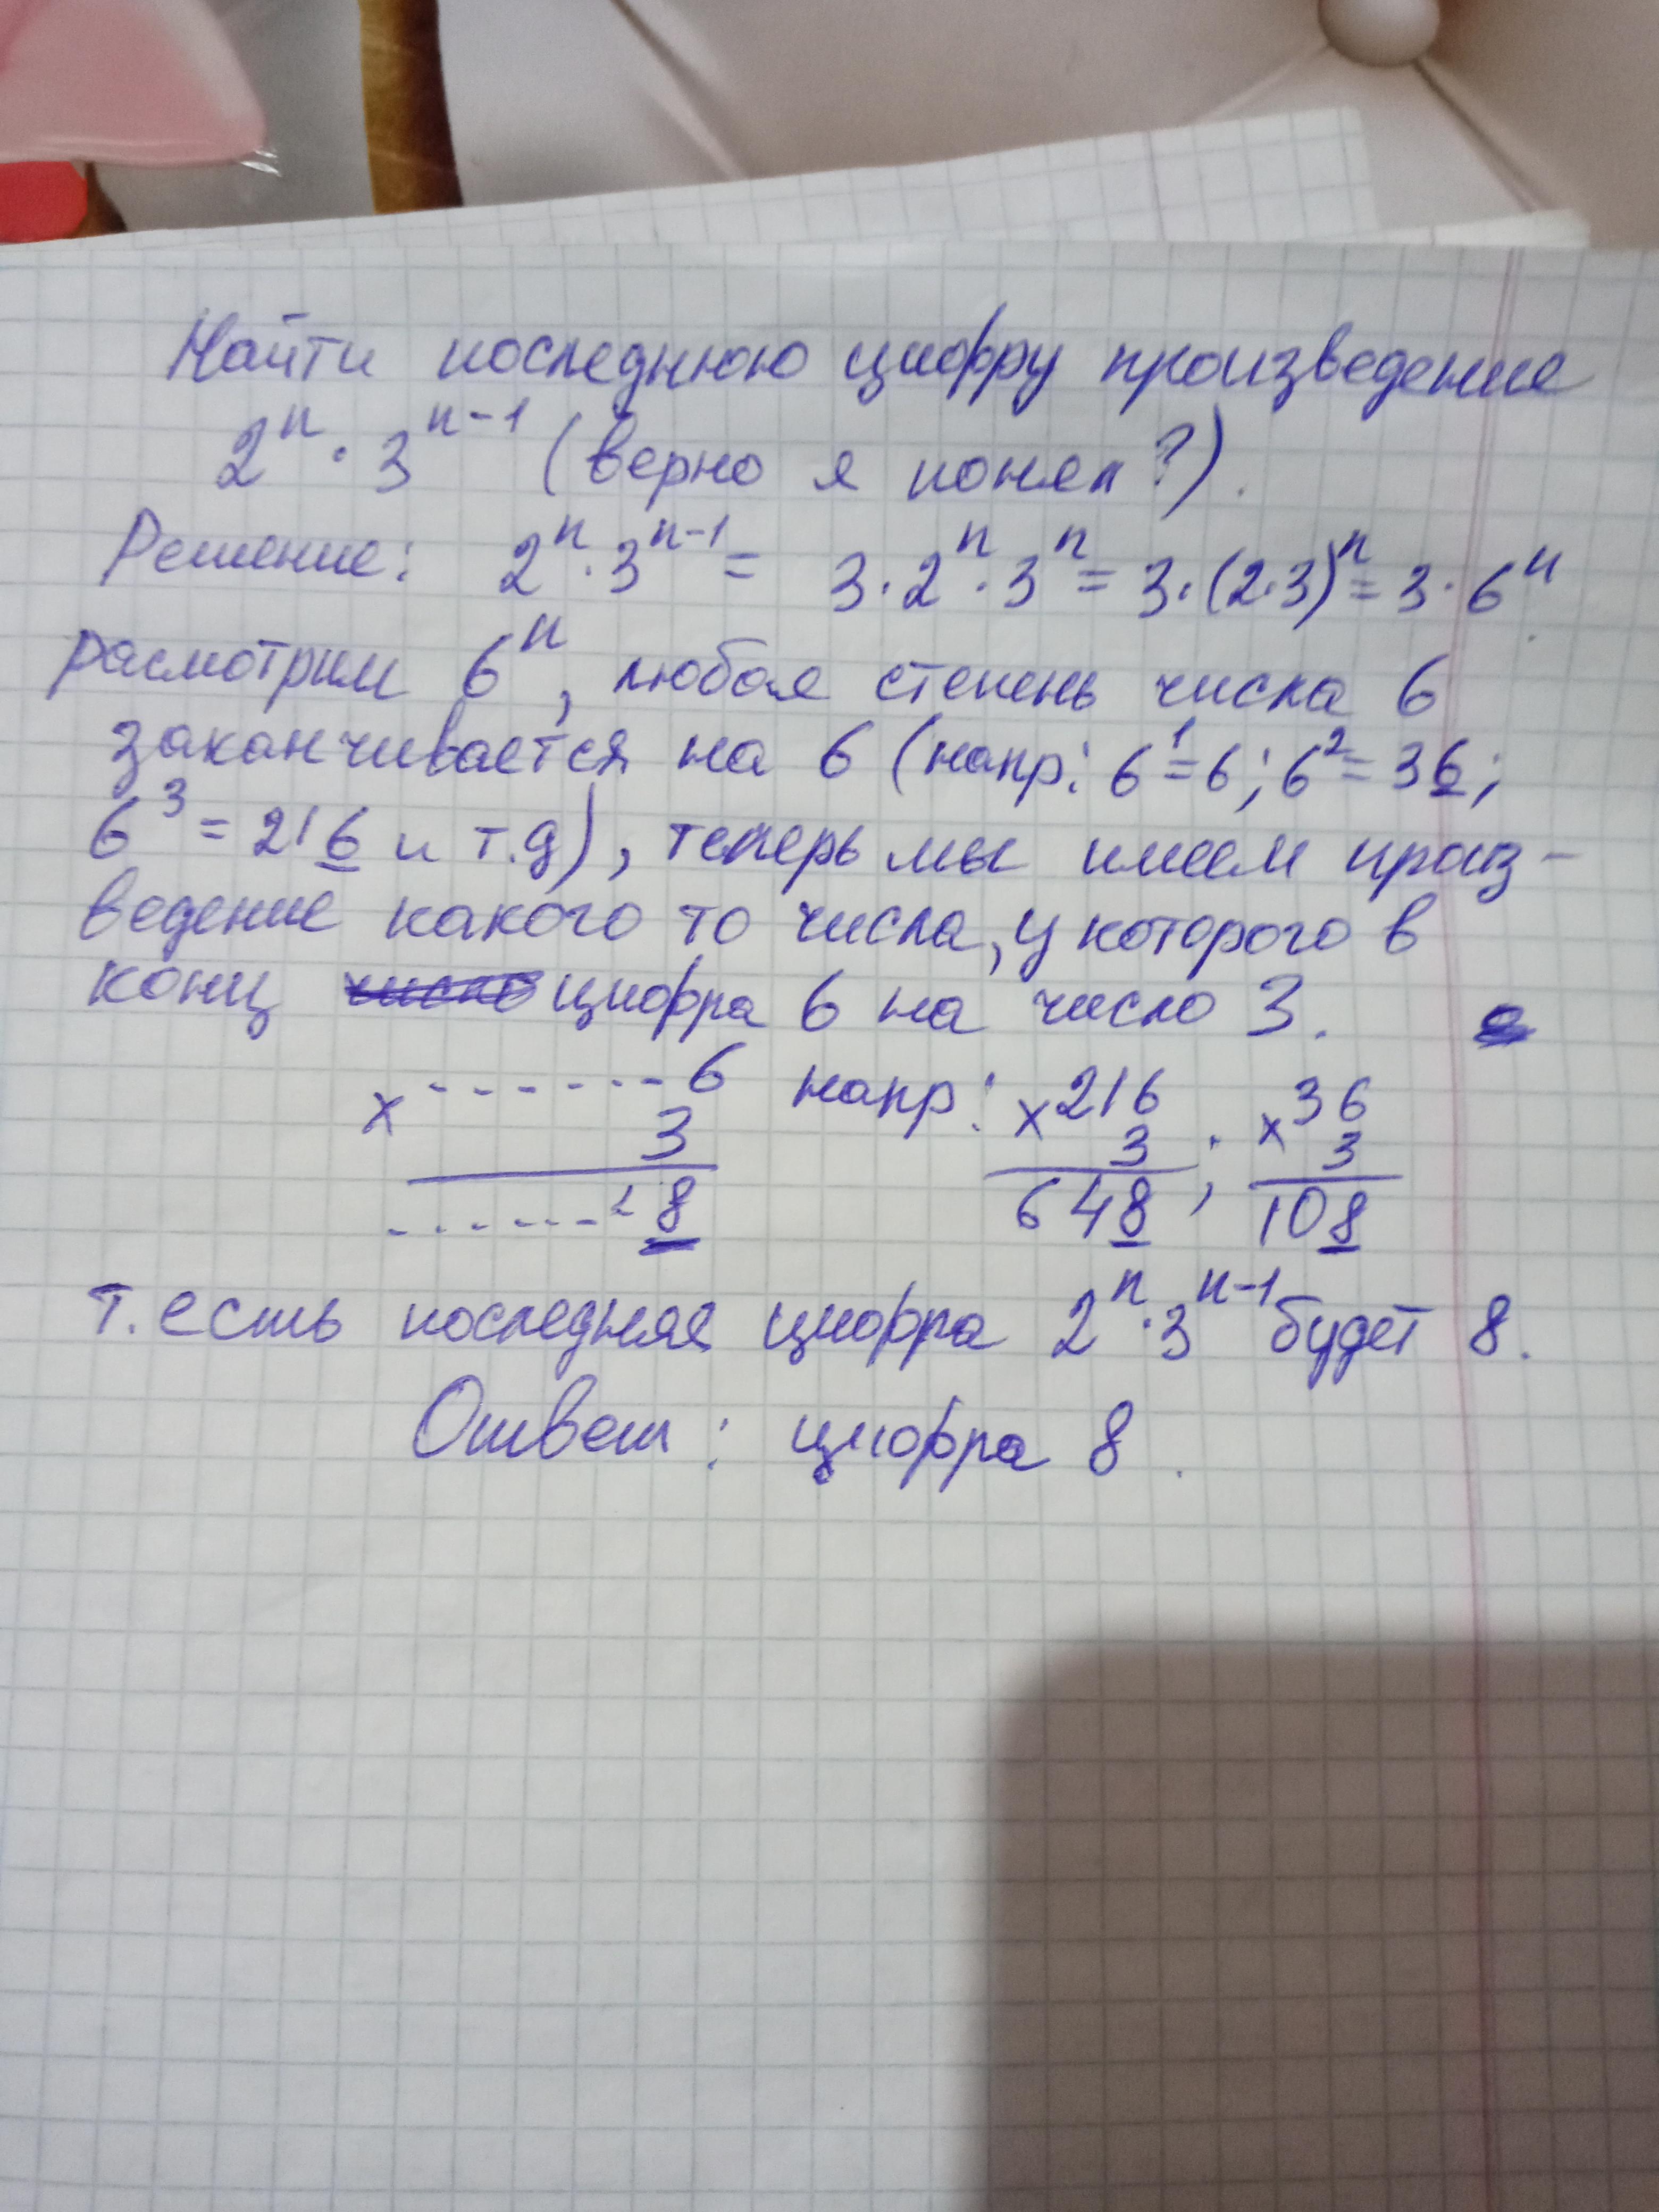 Найти последнюю цифру произведение
2ⁿ · 3ⁿ⁻¹ (верно я понял?).
Решение: 2ⁿ · 3ⁿ⁻¹ = 3 · 2ⁿ · 3ⁿ = 3 · (2·3)ⁿ = 3 · 6ⁿ
расмотрим 6ⁿ, любая степень числа 6
заканчивается на 6 (напр: 6¹=6; 6²=36;
6³ = 216 и т.д), теперь мы имеем произ-
ведение какого то числа, у которого в
конц цифра 6 на число 3.
x - - - - - - - 6 напр: x 216 ; x 36
3 3 3
- - - - - - 8 648 108
т. есть последняя цифра 2ⁿ · 3ⁿ⁻¹ будет 8.
Ответ: цифра 8.